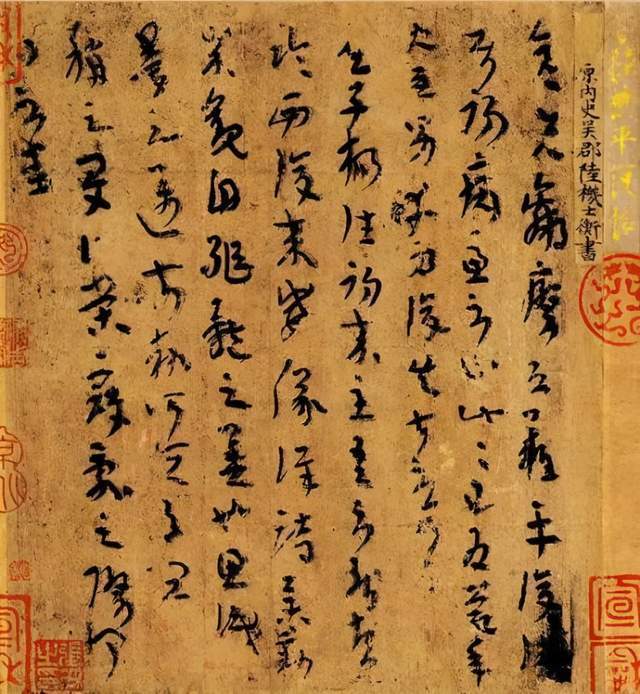 晉陸機平復帖
原内史吳郡陸機士衡書
彥先羸瘵恐難平復往屬
初病慮不止此此已為慶承
使唯男幸為復失前憂耳
子楊往初來主吾不能盡
臨西復來威儀詳跱舉動
成觀自軀體之美也思識
量之邁前執所恒有宜
稱之夏伯榮寇亂之際聞
問不悉